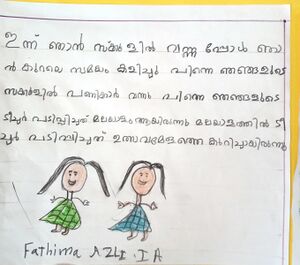 ഇന്ന് ഞാൻ സ്കൂളിൽ വന്നപ്പോൾ ഞാ
ൻ കുറലെ സമയം കളിച്ചു പിന്നെ ഞങ്ങളുടെ
സ്കൂളിൽ പണിക്കാർ വന്നു പിന്നെ ഞങ്ങളുടെ
ടീച്ചർ പഠിപ്പിച്ചത് മലയാളം ആയിരുന്നു മലയാളത്തിൽ ടീ
ച്ചർ പഠിപ്പിച്ചത് ഉത്സവമേളത്തെ കുറിച്ചായിരുന്നു
Fathima AZLIIA